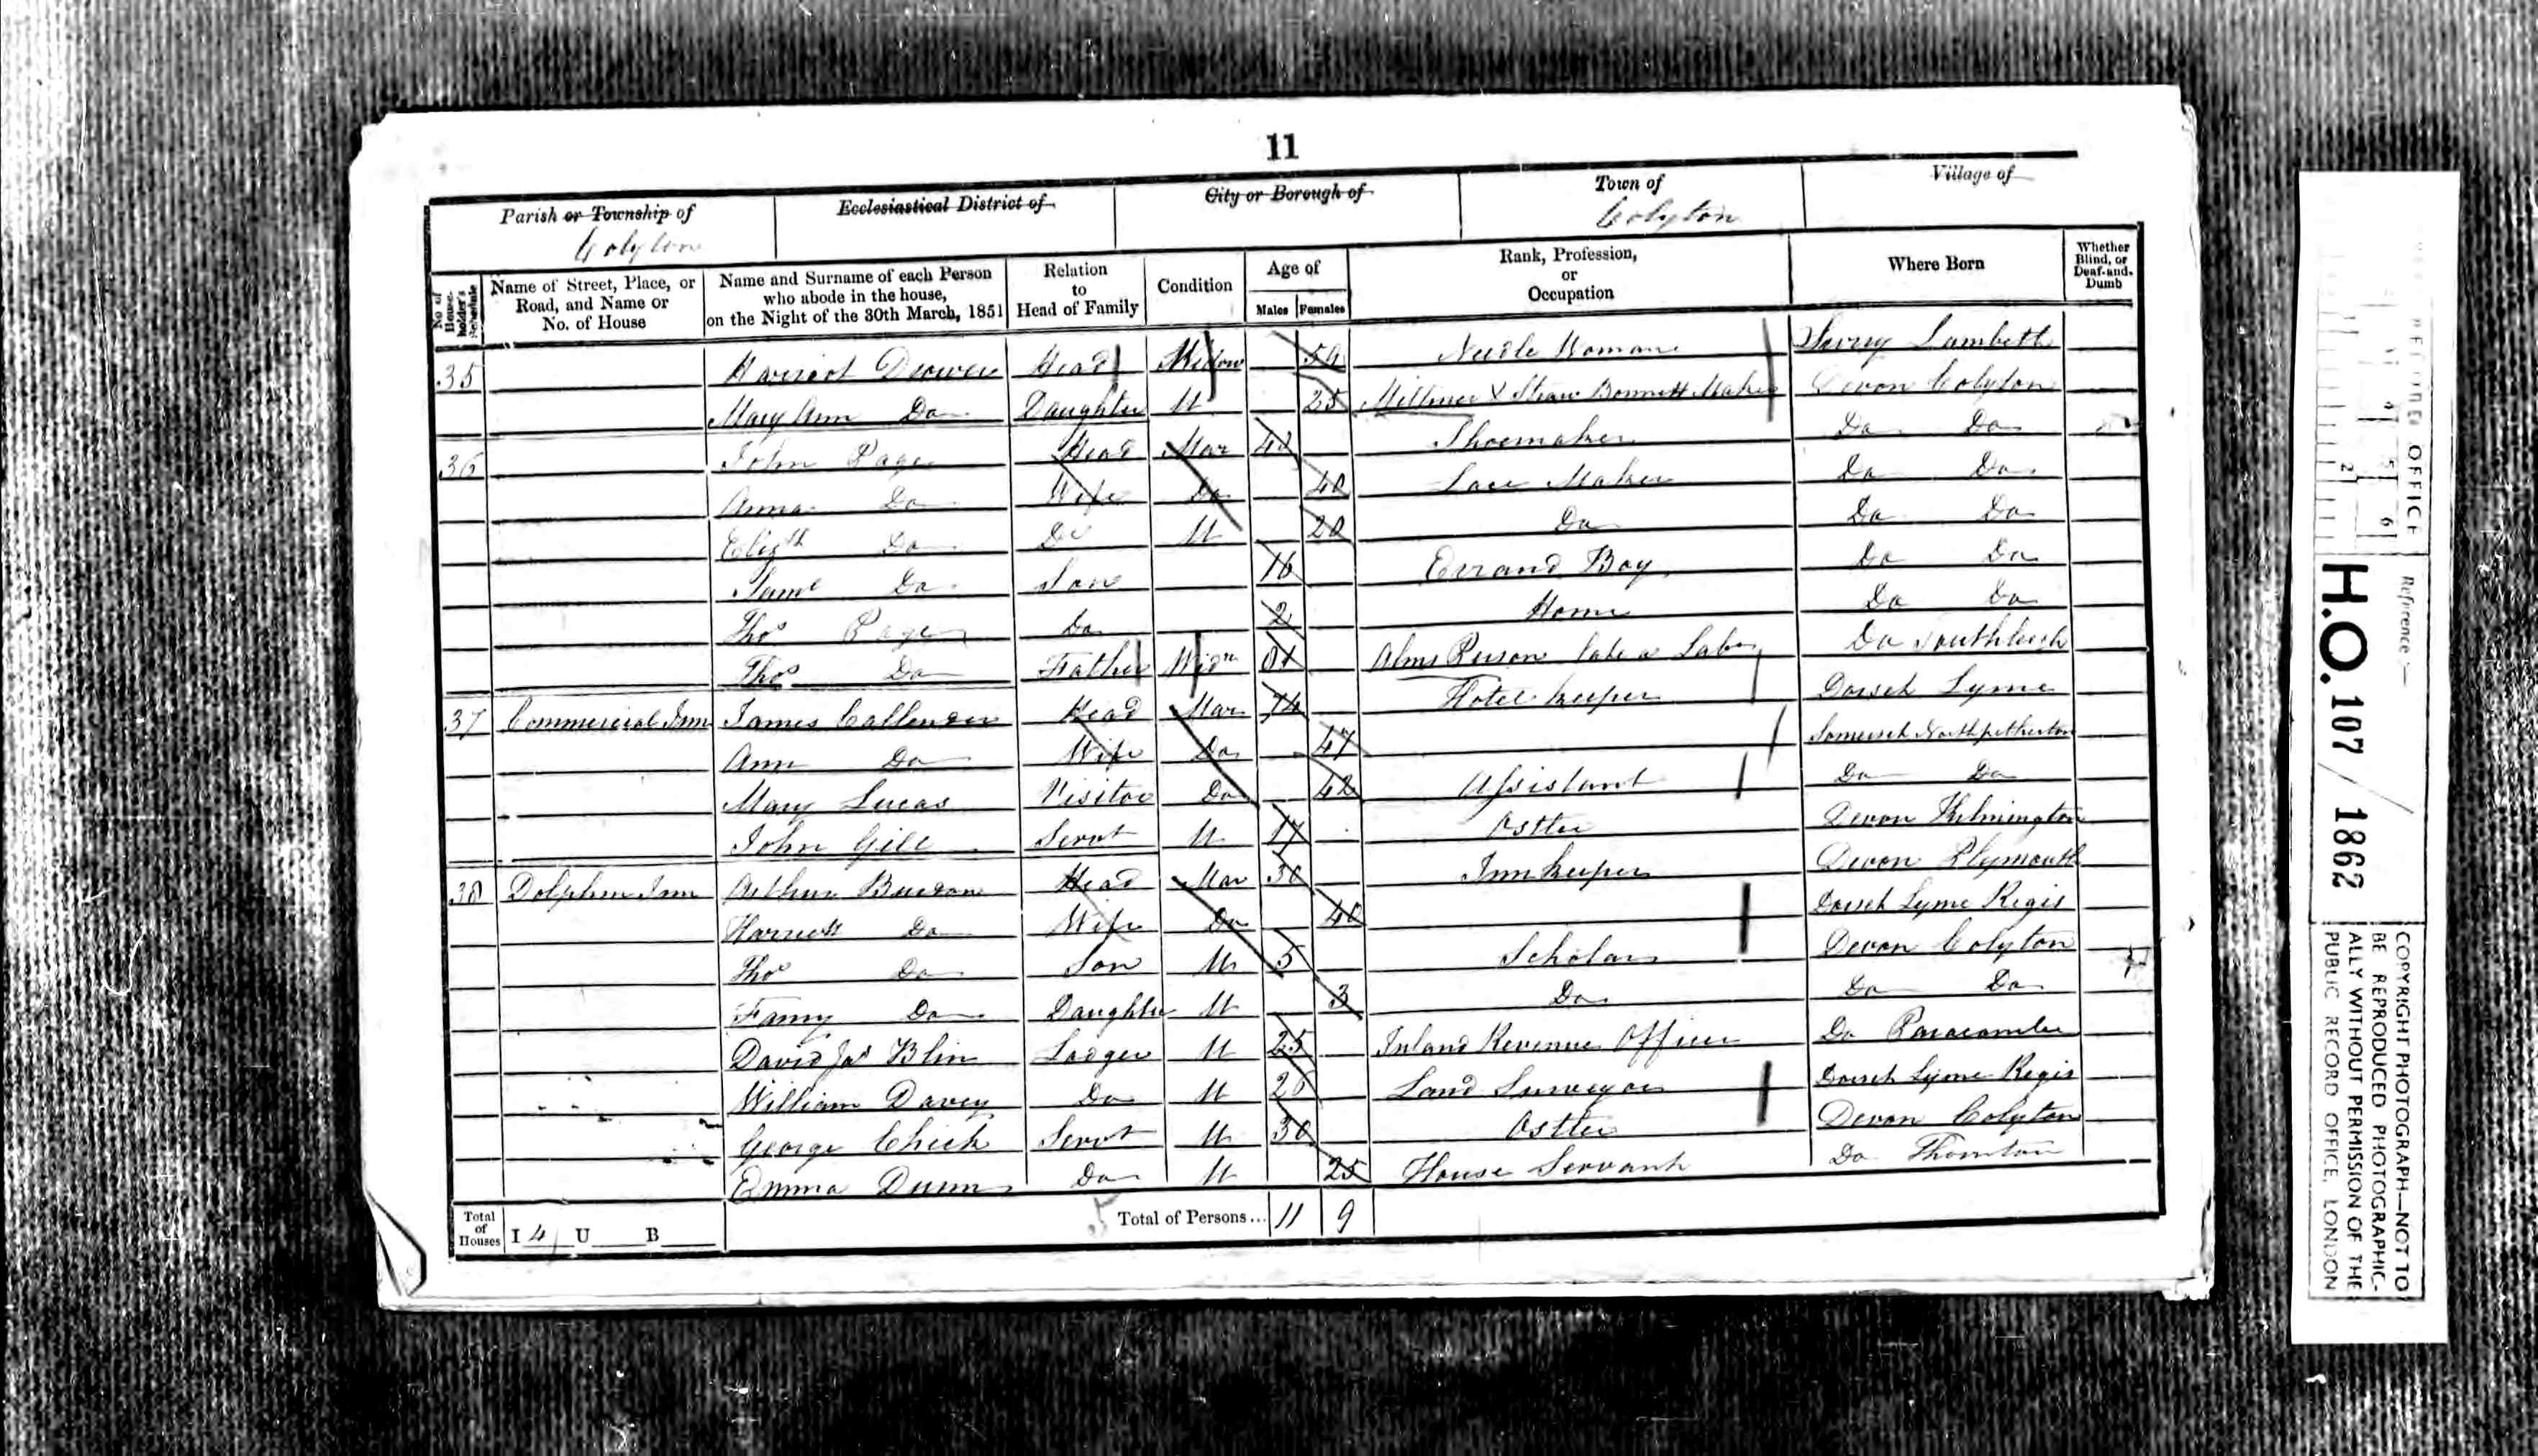 11
Parish or Township of
Colyton
Ecclesiastical District of
City or Borough of
Town of
Colyton
Village of
No. of House-holder's Schedule
Name of Street, Place, or Road, and Name or No. of House
Name and Surname of each Person who abode in the house, on the Night of the 30th March, 1851
Relation to Head of Family
Condition
Age of
Males Females
Rank, Profession, or Occupation
Where Born
Whether Blind, or Deaf-and-Dumb
35 Harriot Head Widow Needle Woman Surrey Lambeth
Mary Ann Do Daughter U 25 Milliner & Straw Bonnett Maker Devon Colyton
36 John Page Head Mar Shoemaker Do Do
Anna Do Wife Do 40 Lace Maker Do Do
Elizth Do Do U 20 Do Do Do
Saml Do Son 16 Errand Boy Do Do
Thos Page Do 2 Home Do Do
Thos Do Father Widr Alms Person Do Southleigh
37 Commercial Inn James Callender Head Mar 74 Hotel keeper Dorset Lyme
Ann Do Wife Do 47 Somerset Northpetherton
Mary Lucas Visitor Do 42 Assistant Do Do
John Gill Servt U 17 Ostler Devon Kilmington
38 Dolphin Inn Arthur Head Mar Innkeeper Devon Plymouth
Harriett Do Wife Do 40 Dorset Lyme Regis
Thos Do Son U 5 Scholar Devon Colyton
Fanny Do Daughter U 3 Do Do Do
David Jas Blin Lodger U 25 Inland Revenue Officer Do Paracombe
William Davey Do U Land Surveyor Dorset Lyme Regis
George Chick Servt U 30 Ostler Devon Colyton
Emma Dunn Do U 25 House Servant Do Thornton
Total of Houses I 4 U B Total of Persons... 11 9
RECORD OFFICE
Reference:-
H.O. 107 / 1862
COPYRIGHT PHOTOGRAPH—NOT TO
BE REPRODUCED PHOTOGRAPHIC-
ALLY WITHOUT PERMISSION OF THE
PUBLIC RECORD OFFICE, LONDON